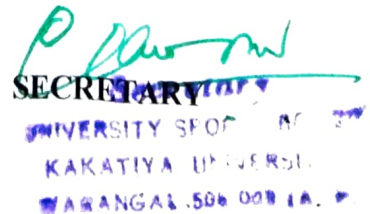 SECRETARY
Secretary
UNIVERSITY SPO
KAKATIYA UNIVERSI
WARANGAL.506 009 (A. P.